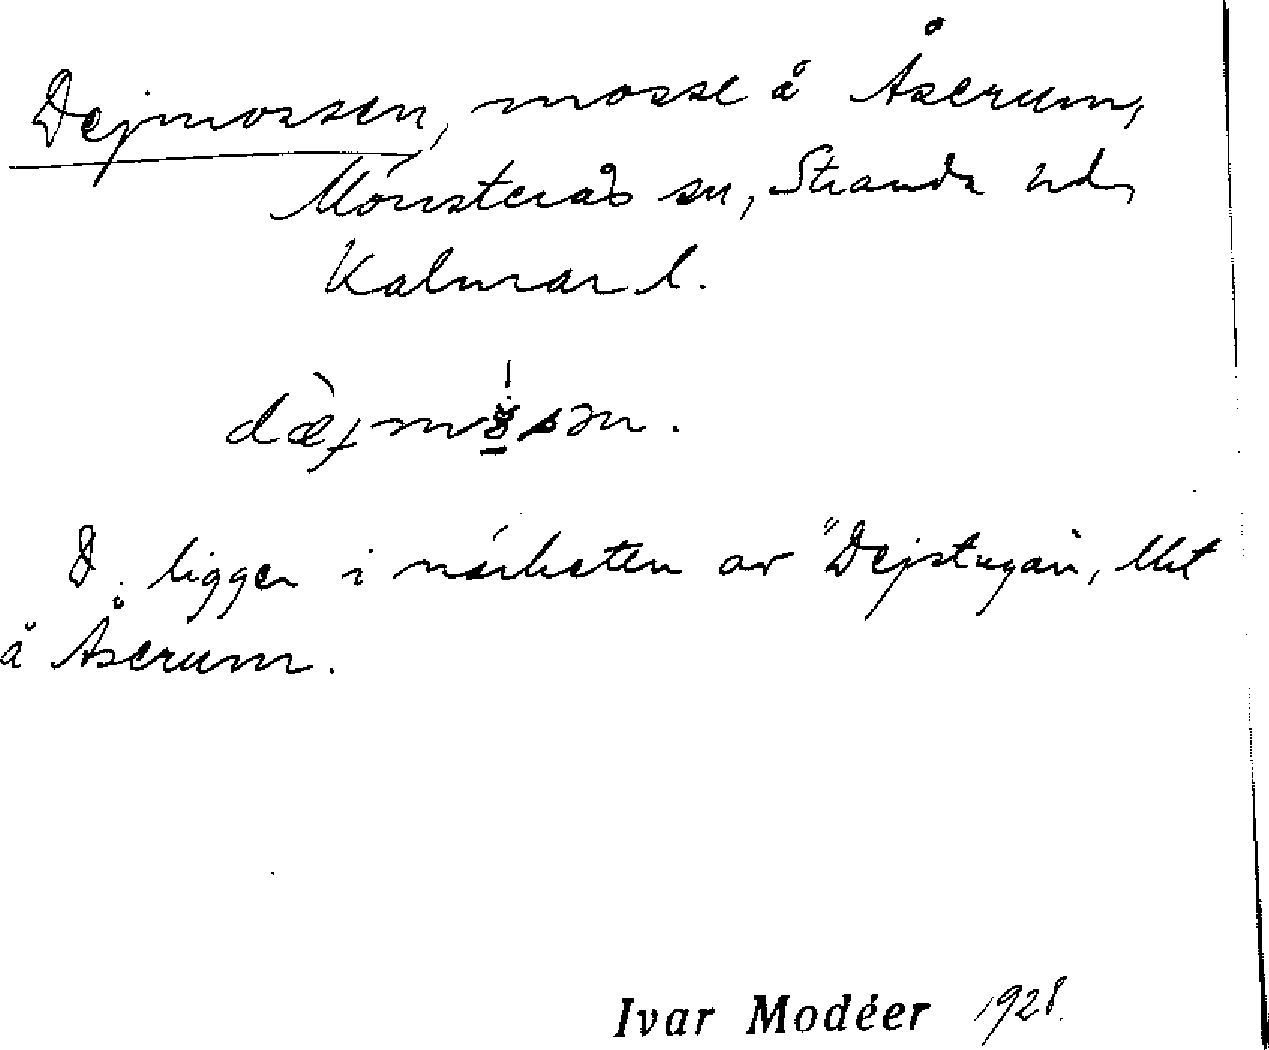 Dejmossen, mosse å Åserum,
Mönsterås sn, Stranda hd,
Kalmar l.
D. ligger i närheten av "Dejstugan",
å Åserum.
Ivar Modéer 1928.